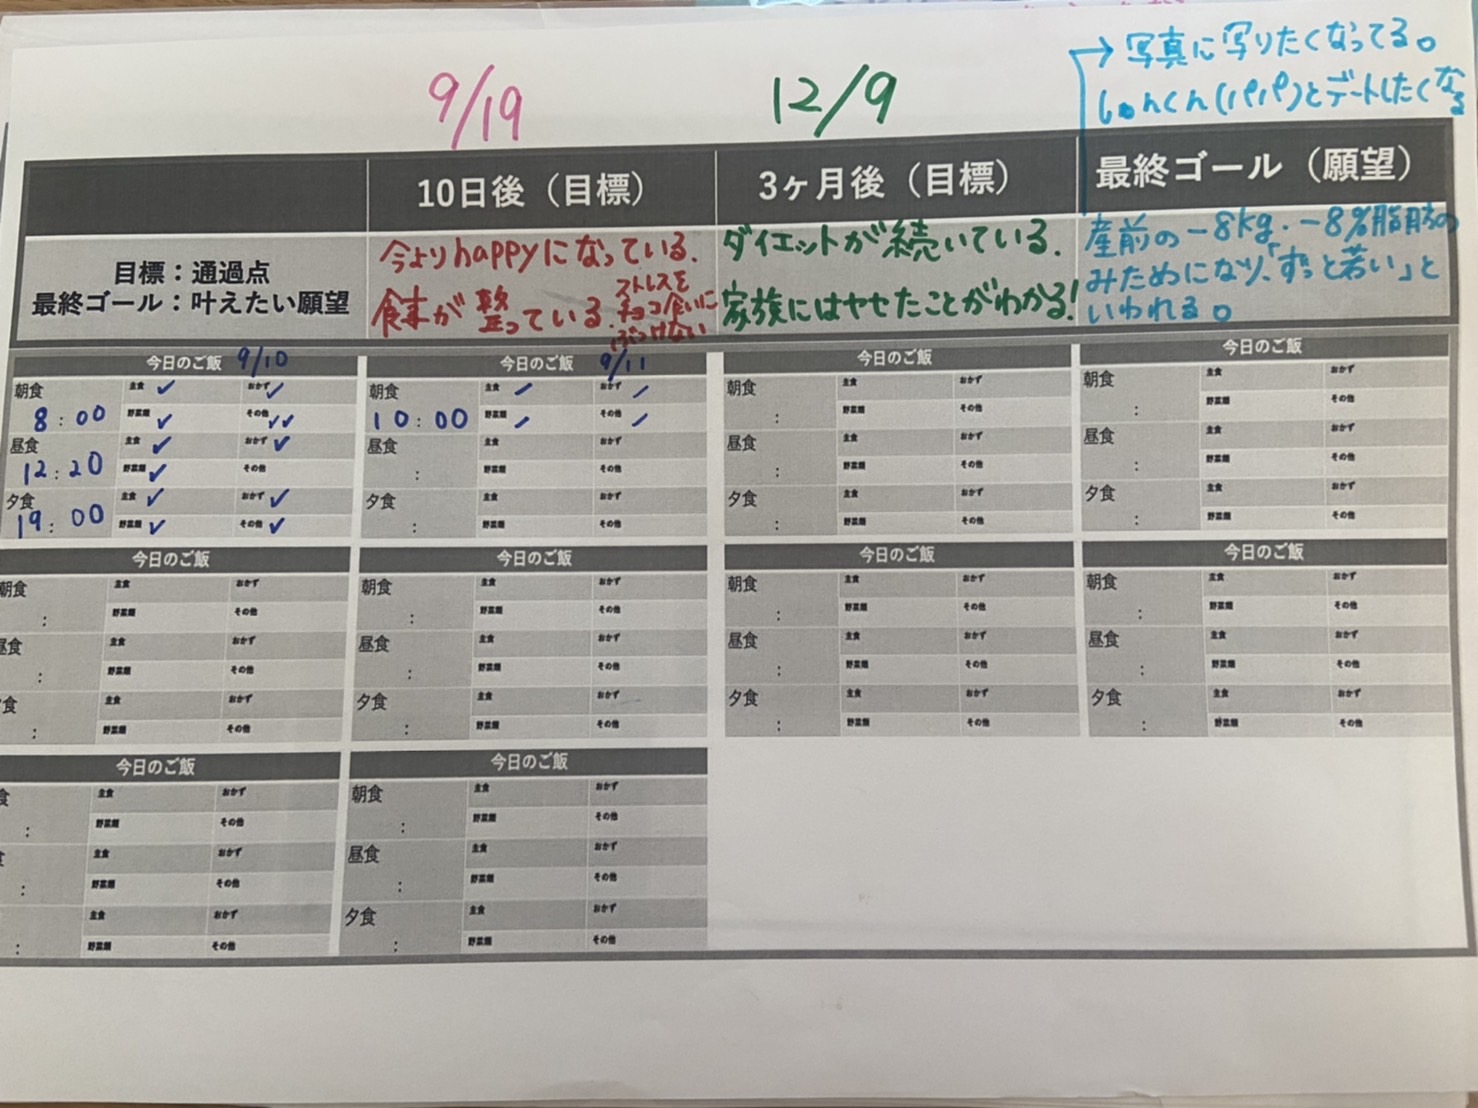 →写真に写りたくなってる。
しゅんくん(パパ)とデートしたくなる
9/19
12/9
10日後（目標）
3ヶ月後（目標）
最終ゴール（願望）
目標：通過点
最終ゴール：叶えたい願望
今よりhappyになっている.
食事が整っている.
ストレスを
チョコ食いに
ぶつけない
ダイエットが続いている.
家族にはヤセたことがわかる!
産前の-8kg.-8%脂肪の
みためになり、「ずっと若い」と
いわれる。
今日のご飯 9/10
朝食 主食 ✓ おかず ✓
8:00 野菜類 ✓ その他 ✓✓
昼食 主食 ✓ おかず ✓
12:20 野菜類 ✓ その他
夕食 主食 ✓ おかず ✓
19:00 野菜類 ✓ その他 ✓
今日のご飯 9/11
朝食 主食 ✓ おかず ✓
10:00 野菜類 ✓ その他 ✓
昼食 主食 おかず
: 野菜類 その他
夕食 主食 おかず
: 野菜類 その他
今日のご飯
朝食 主食 おかず
: 野菜類 その他
昼食 主食 おかず
: 野菜類 その他
夕食 主食 おかず
: 野菜類 その他
今日のご飯
朝食 主食 おかず
: 野菜類 その他
昼食 主食 おかず
: 野菜類 その他
夕食 主食 おかず
: 野菜類 その他
今日のご飯
朝食 主食 おかず
: 野菜類 その他
昼食 主食 おかず
: 野菜類 その他
夕食 主食 おかず
: 野菜類 その他
今日のご飯
朝食 主食 おかず
: 野菜類 その他
昼食 主食 おかず
: 野菜類 その他
夕食 主食 おかず
: 野菜類 その他
今日のご飯
朝食 主食 おかず
: 野菜類 その他
昼食 主食 おかず
: 野菜類 その他
夕食 主食 おかず
: 野菜類 その他
今日のご飯
朝食 主食 おかず
: 野菜類 その他
昼食 主食 おかず
: 野菜類 その他
夕食 主食 おかず
: 野菜類 その他
今日のご飯
食 主食 おかず
: 野菜類 その他
食 主食 おかず
: 野菜類 その他
主食 おかず
: 野菜類 その他
今日のご飯
朝食 主食 おかず
: 野菜類 その他
昼食 主食 おかず
: 野菜類 その他
夕食 主食 おかず
: 野菜類 その他